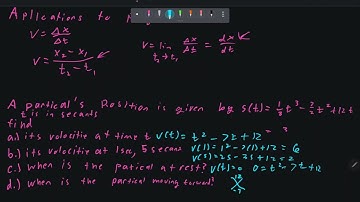 Aplications to
V = Δx/Δt
V = lim t₂→t₁ Δx/Δt = dx/dt
V = x₂ - x₁ / t₂ - t₁
A partical's Position is given by s(t) = 1/3 t³ - 7/2 t² + 12t
t is in secants
find
a.) its velocitie at time t v(t) = t² - 7t + 12
b.) its velocitie at 1sec, 5 secons v(1) = 1² - 7(1) + 12 = 6
v(5) = 25 - 35 + 12 = 2
c.) when is the patical at rest? v(t) = 0 0 = t² - 7t + 12
d.) when is the partical moving forward?
12
-7